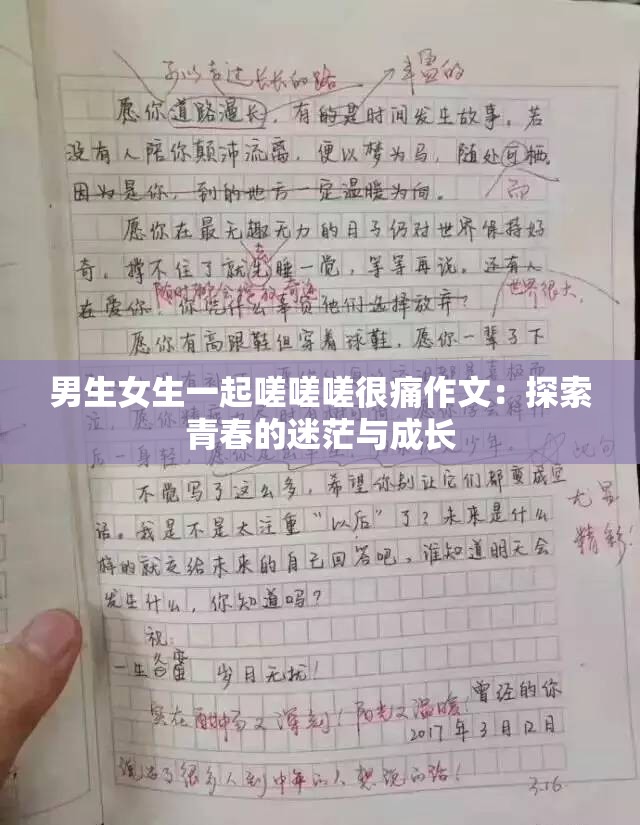 可以走过长长的路 丰盈的
愿你道路漫长，有的是时间发生故事。若
没有人陪你颠沛流离，便以梦为马，随处可栖。
因为是你，到的地方一定温暖为向。
而
愿你在最无趣无力的日子仍对世界保持好
奇，撑不住了就先睡一觉，等等再说。还有人
去
随时都会
世界很大，
在爱你，你凭什么辜负他们选择放弃？
愿你有高跟鞋但穿着球鞋，愿你一辈子下
男生女生一起嗟嗟嗟很痛作文：探索
青春的迷茫与成长
此句
尤其
精彩！
不觉写了这么多，希望你别让它们都变成空
话。我是不是太注重“以后”了？未来是什么
样的就交给未来的自己回答吧，谁知道明天会
发生什么，你知道吗？
祝：
一生 岁月无扰！
曾经的你
实在酣畅又深刻！阳光又温暖！
2017年3月12日
说出了很多人到中年的人想说的话！
3.16